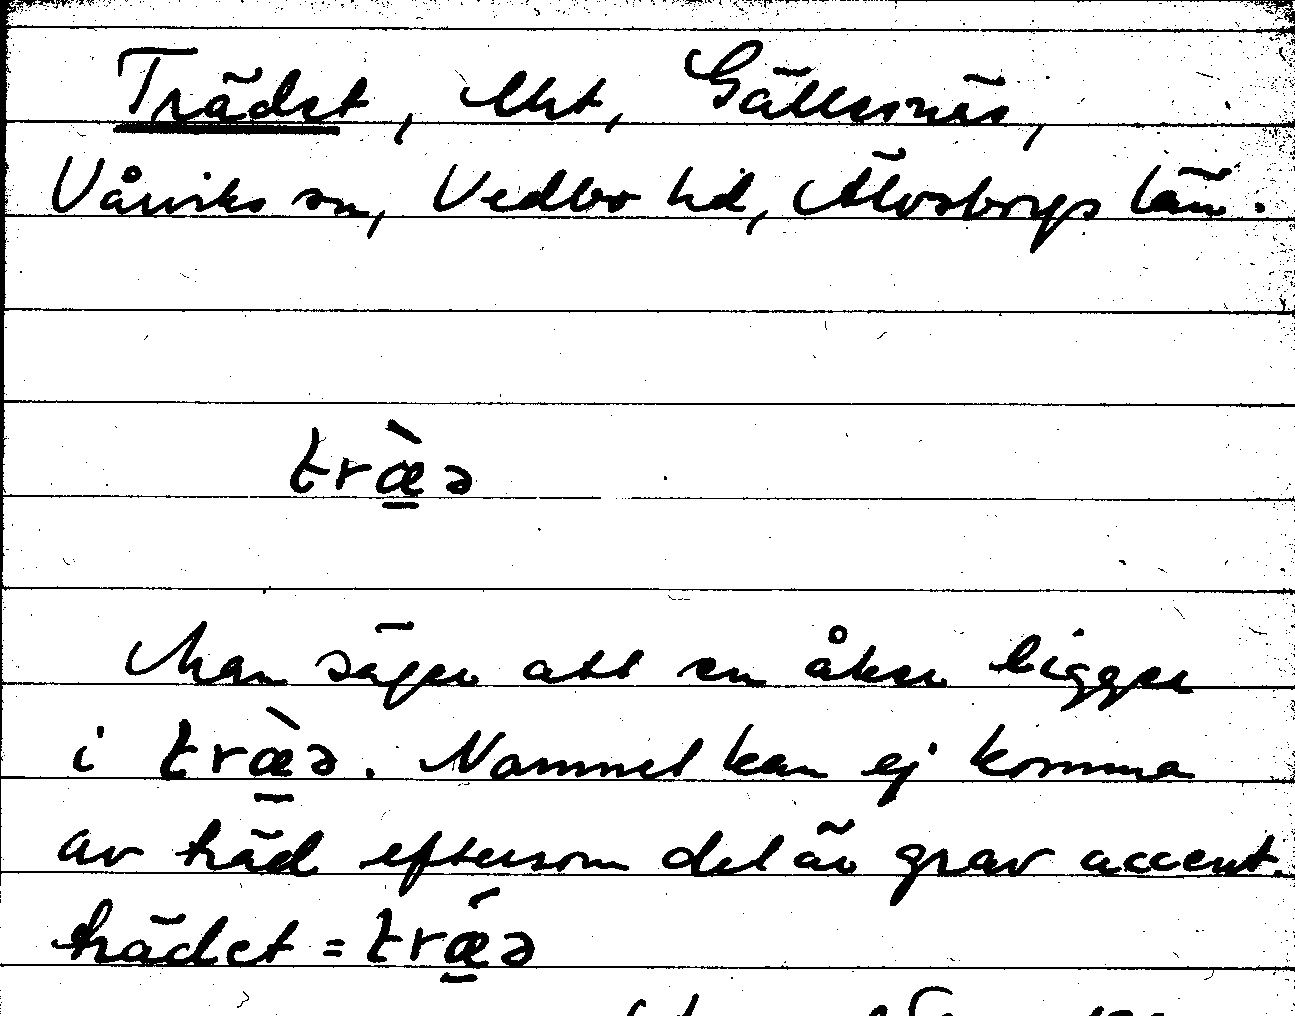 Trädet, tkt, Gällesnäs,
Vårviks sn, Vedbo hd, Älvsborgs län.
træ̱̀ə
Man säger att en åker ligger
i træ̱̀ə. Namnet kan ej komma
av träd eftersom det är grav accent.
trädet = trǽ̱ə